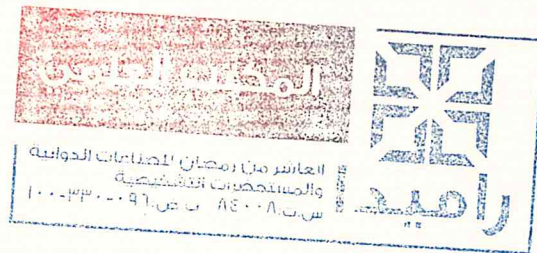 المكتب العلمى
راميدا
العاشر من رمضان للصناعات الدوائية
والمستحضرات التشخيصية
س.ت.٨٤٠٠٨ ب.ض.٠٩٦-٣٣٠-١٠٠